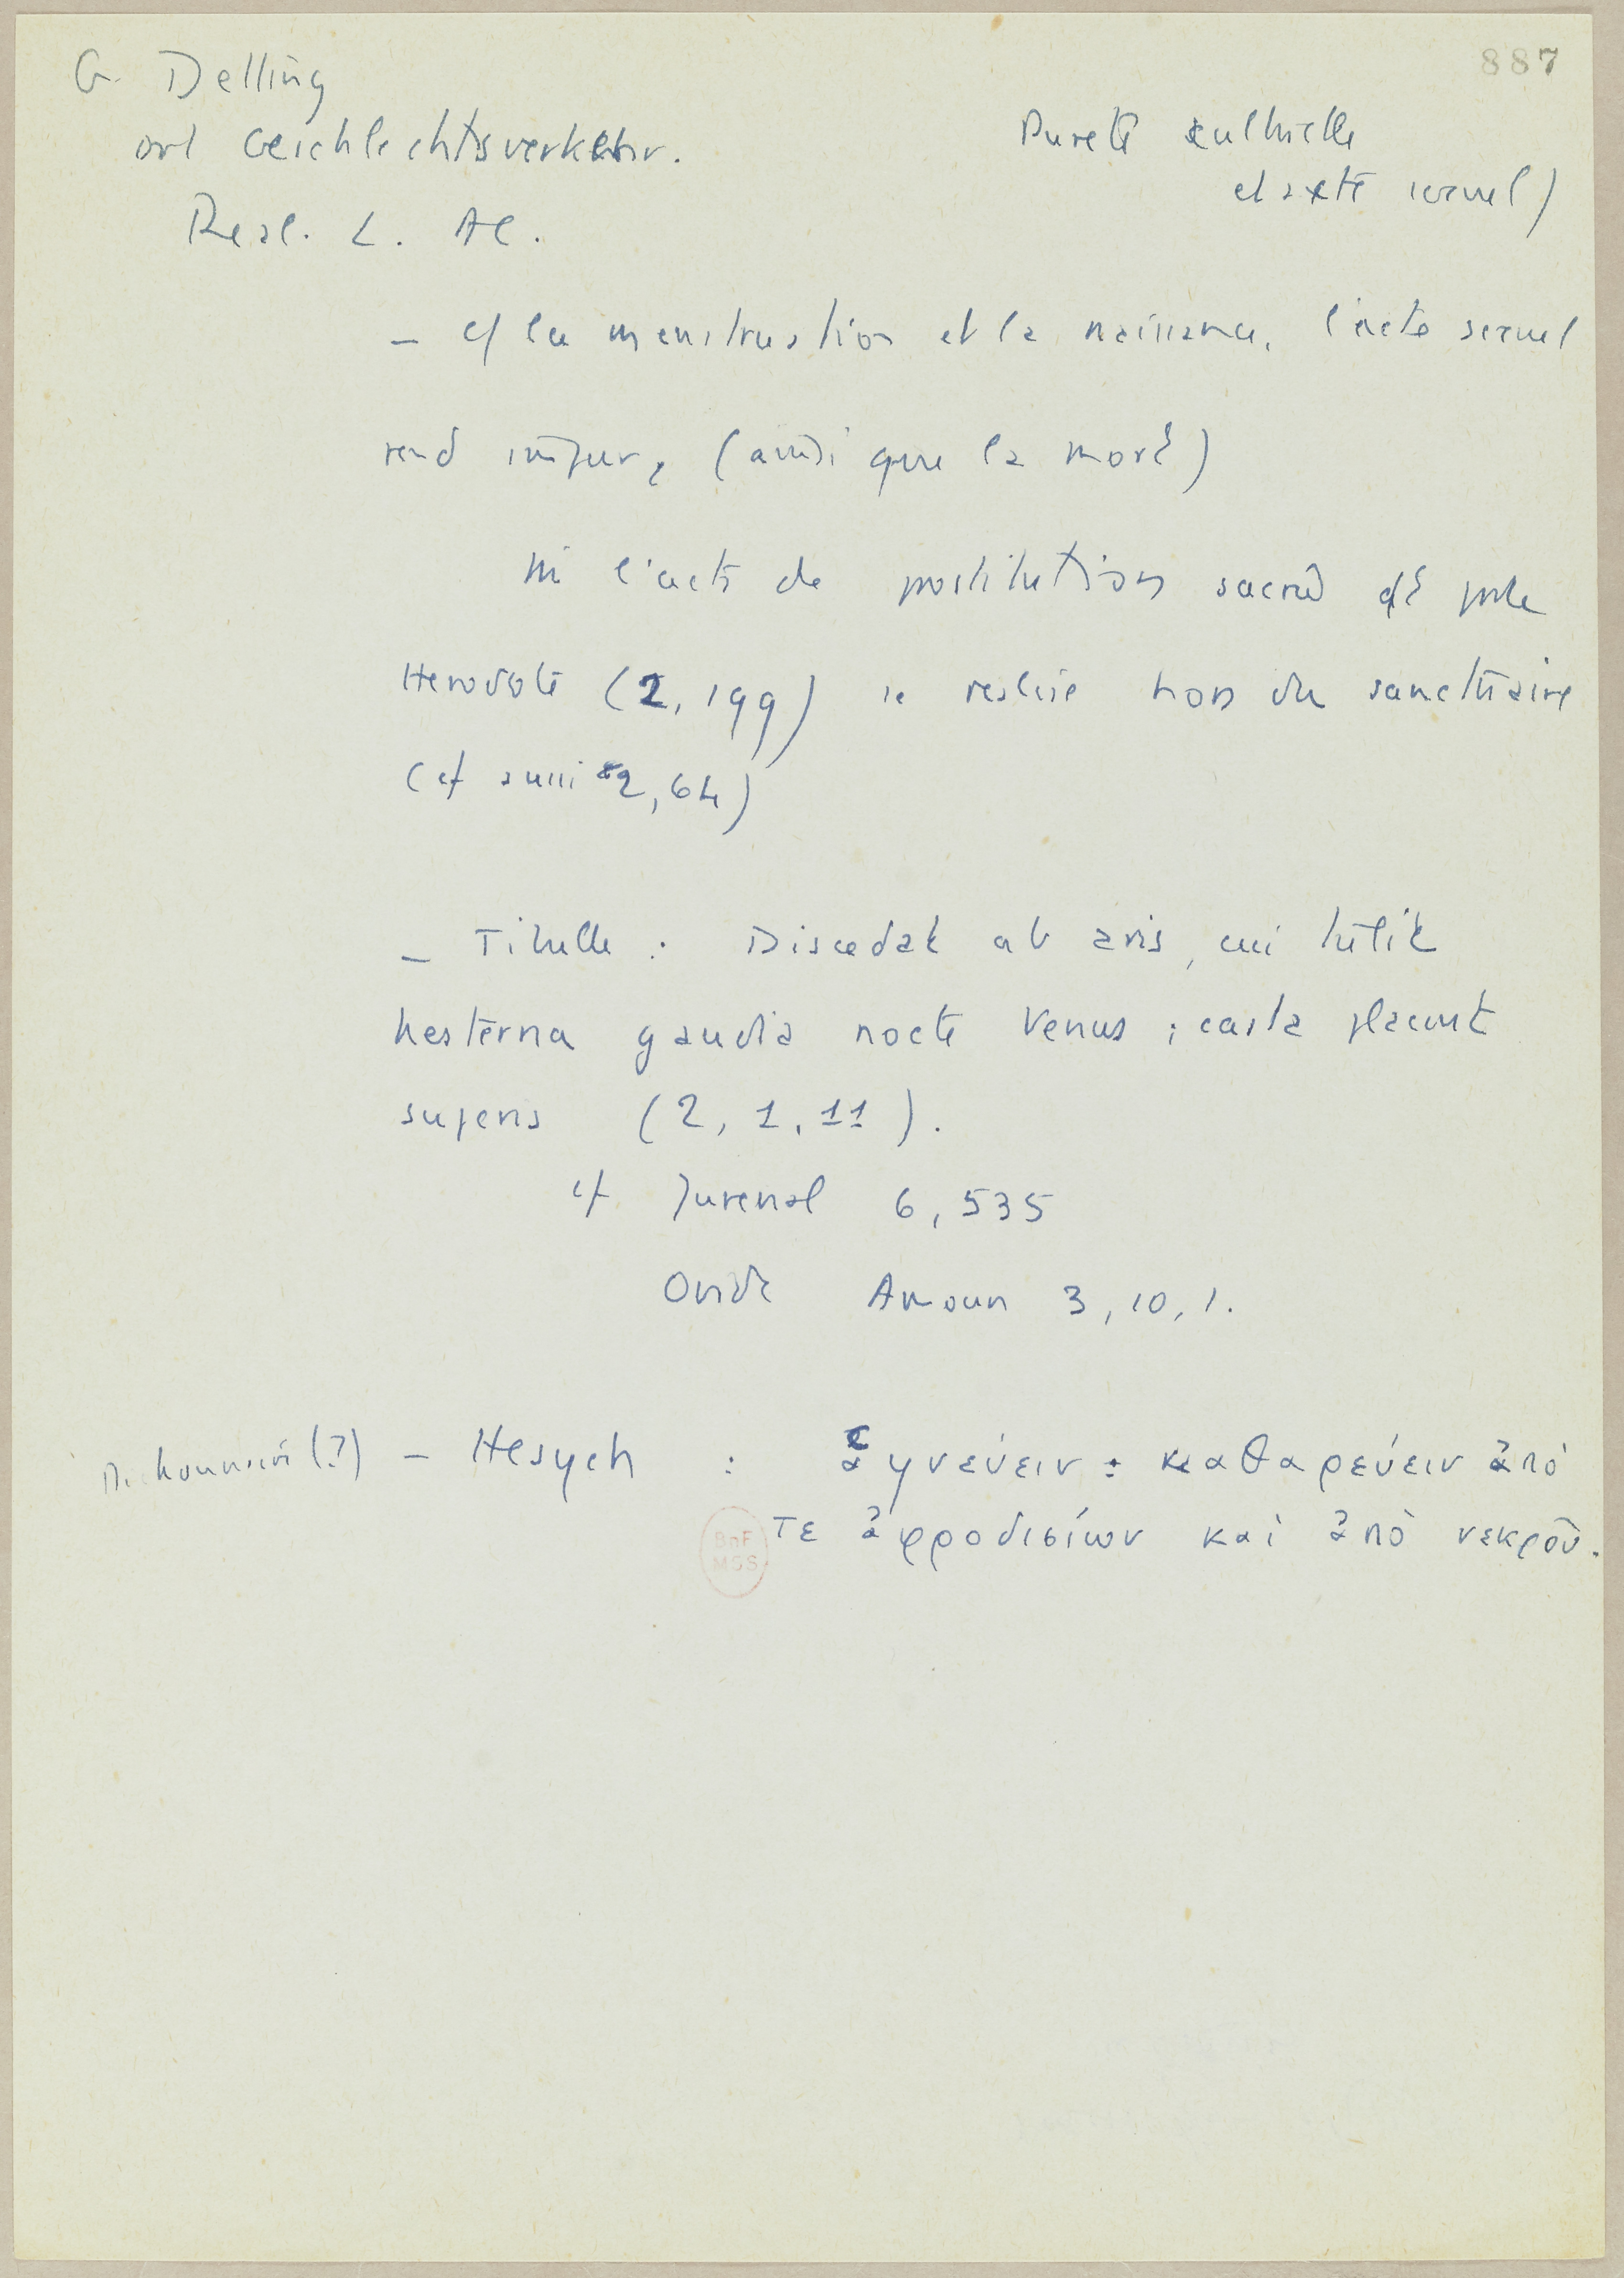 887
G. Delling
art Geschlechtsverkehr.
Real. L. AC.
Pureté cultuelle
et acte sexuel)
– cf la menstruation et la naissance, l'acte sexuel
rend impur, (ainsi que la mort)
ni l'acte de prostitution sacrée dt parle
Herodote (2, 199) se realise hors du sanctuaire
(cf aussi 2, 64)
– Tibulle : Discedat ab aris, cui tulit
hesterna gaudia nocte Venus ; casta placent
superis (2, 1, 11).
cf Juvenal 6, 535
Ovide Amours 3, 10, 1.
(?) – Hesych : ἁγνεύειν : καθαρεύειν ἀπό
τε ἀφροδισίων καὶ ἀπὸ νεκροῦ.
BnF
MSS